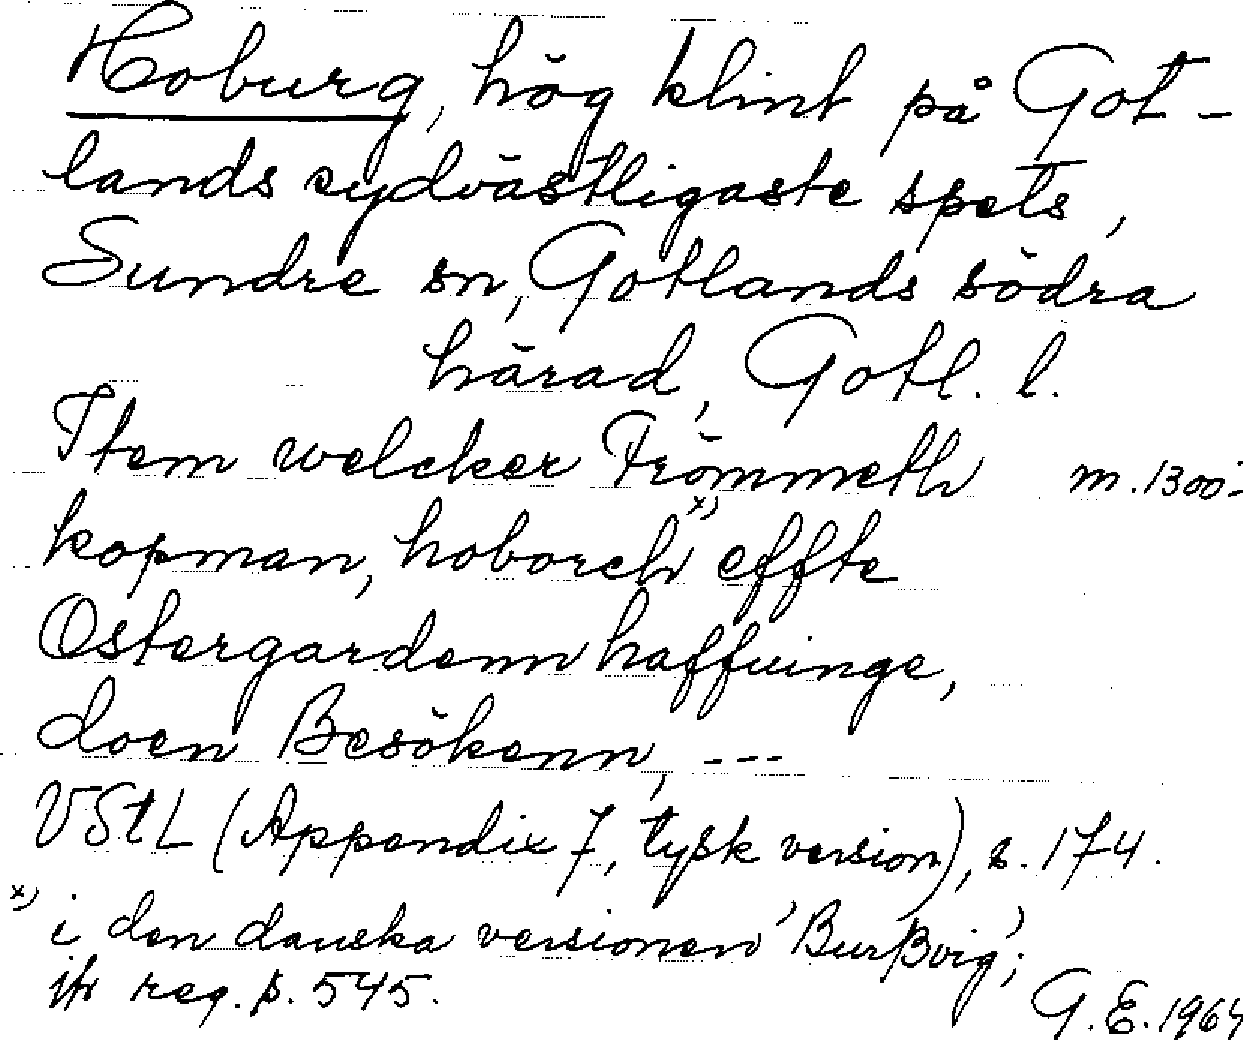 Hoburg, hög klint på Got-
lands sydvästligaste spets,
Sundre sn, Gotlands södra
härad, Gotl. l.
Item welcker Frömmeth m. 1300-
kopman, hoborch x) effte
Ostergardenn haffuinge,
doen Besökenn, ---
VStL (Appendix 7, tysk version), s. 174.
x) i den danska versionen 'Burßvig';
jfr reg. s. 545.
G.E. 1964